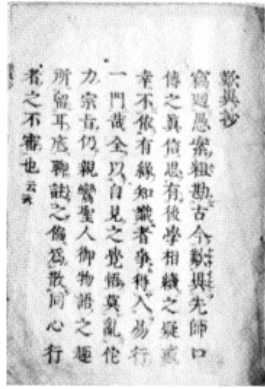 歎異抄
竊廻愚案粗勘古今歎異先師口
傳之眞信思有後學相續之疑惑
幸不依有緣知識者爭得入易行
一門哉全以自見之覺悟莫亂他
力宗旨仍親鸞聖人御物語之趣
所留耳底聊註之偏爲散同心行
者之不審也云云